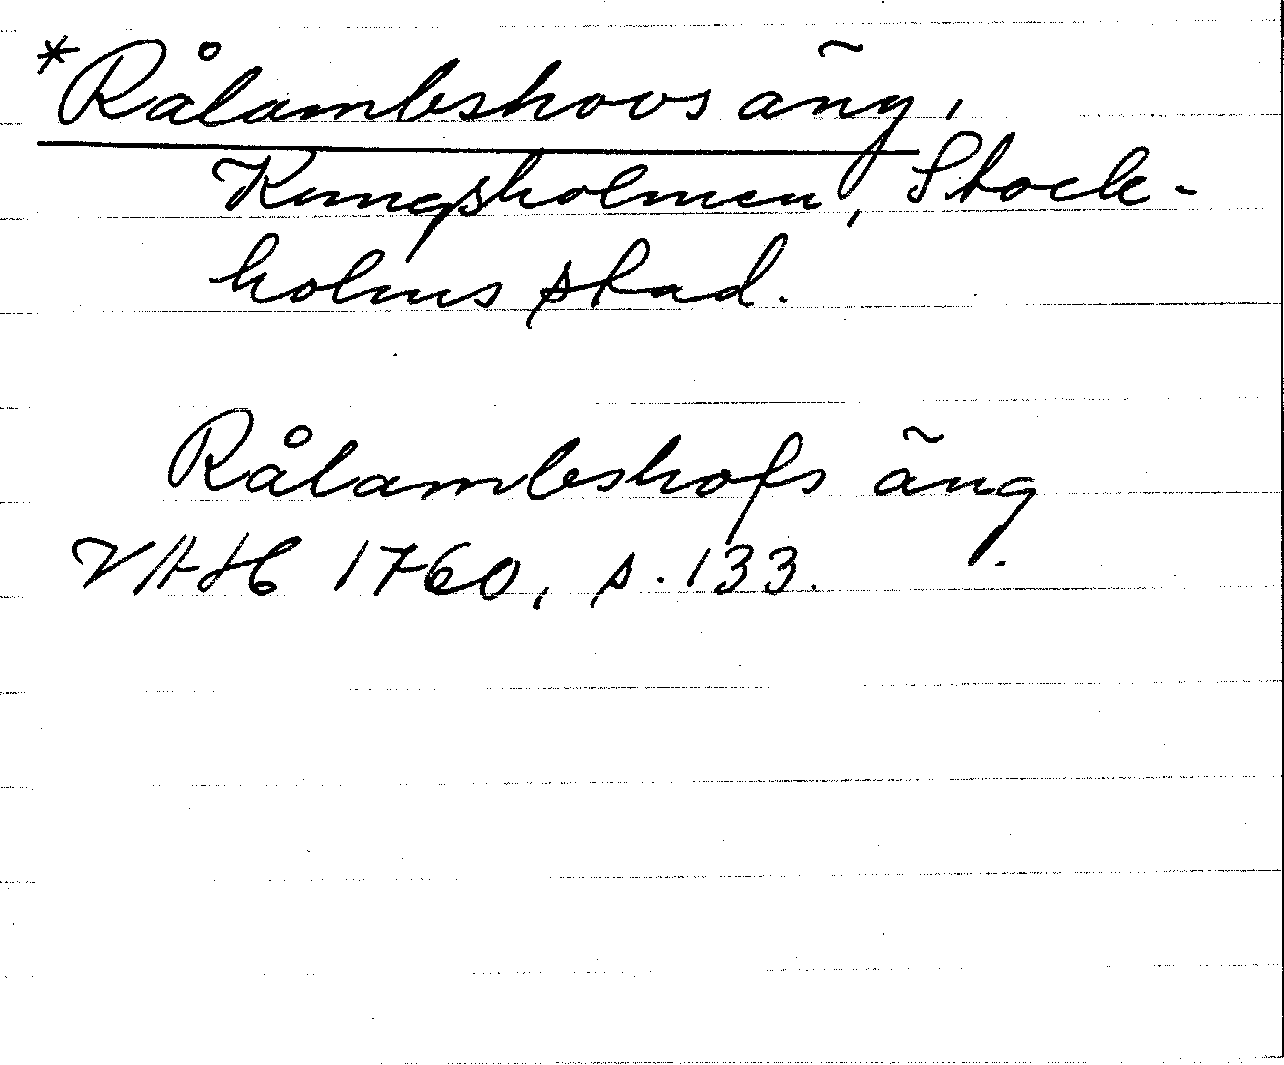 *Rålambshovs äng,
Kungsholmen, Stock-
holms stad.
Rålambshofs äng
VAH 1760, s. 133.